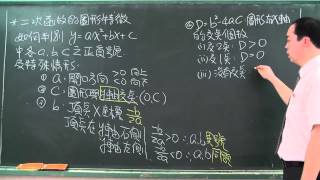 *二次函數的圖形特徵
如何判別 y=ax²+bx+c
中各a.b.c之正負號
及特殊情形
① a: 開口方向 >0 向上 <0 向下
② C: 圖形與y軸交點(0,C)
③ b: 頂點X坐標 -b/2a
頂點在y軸右側 -b/2a>0 ∴a,b異號
y軸左側 -b/2a<0 ∴a,b同號
④ D=b²-4ac 圖形與x軸
的交點個數
(i) 交2點: D>0
(ii) 交1點: D=0
(iii) 沒有交點